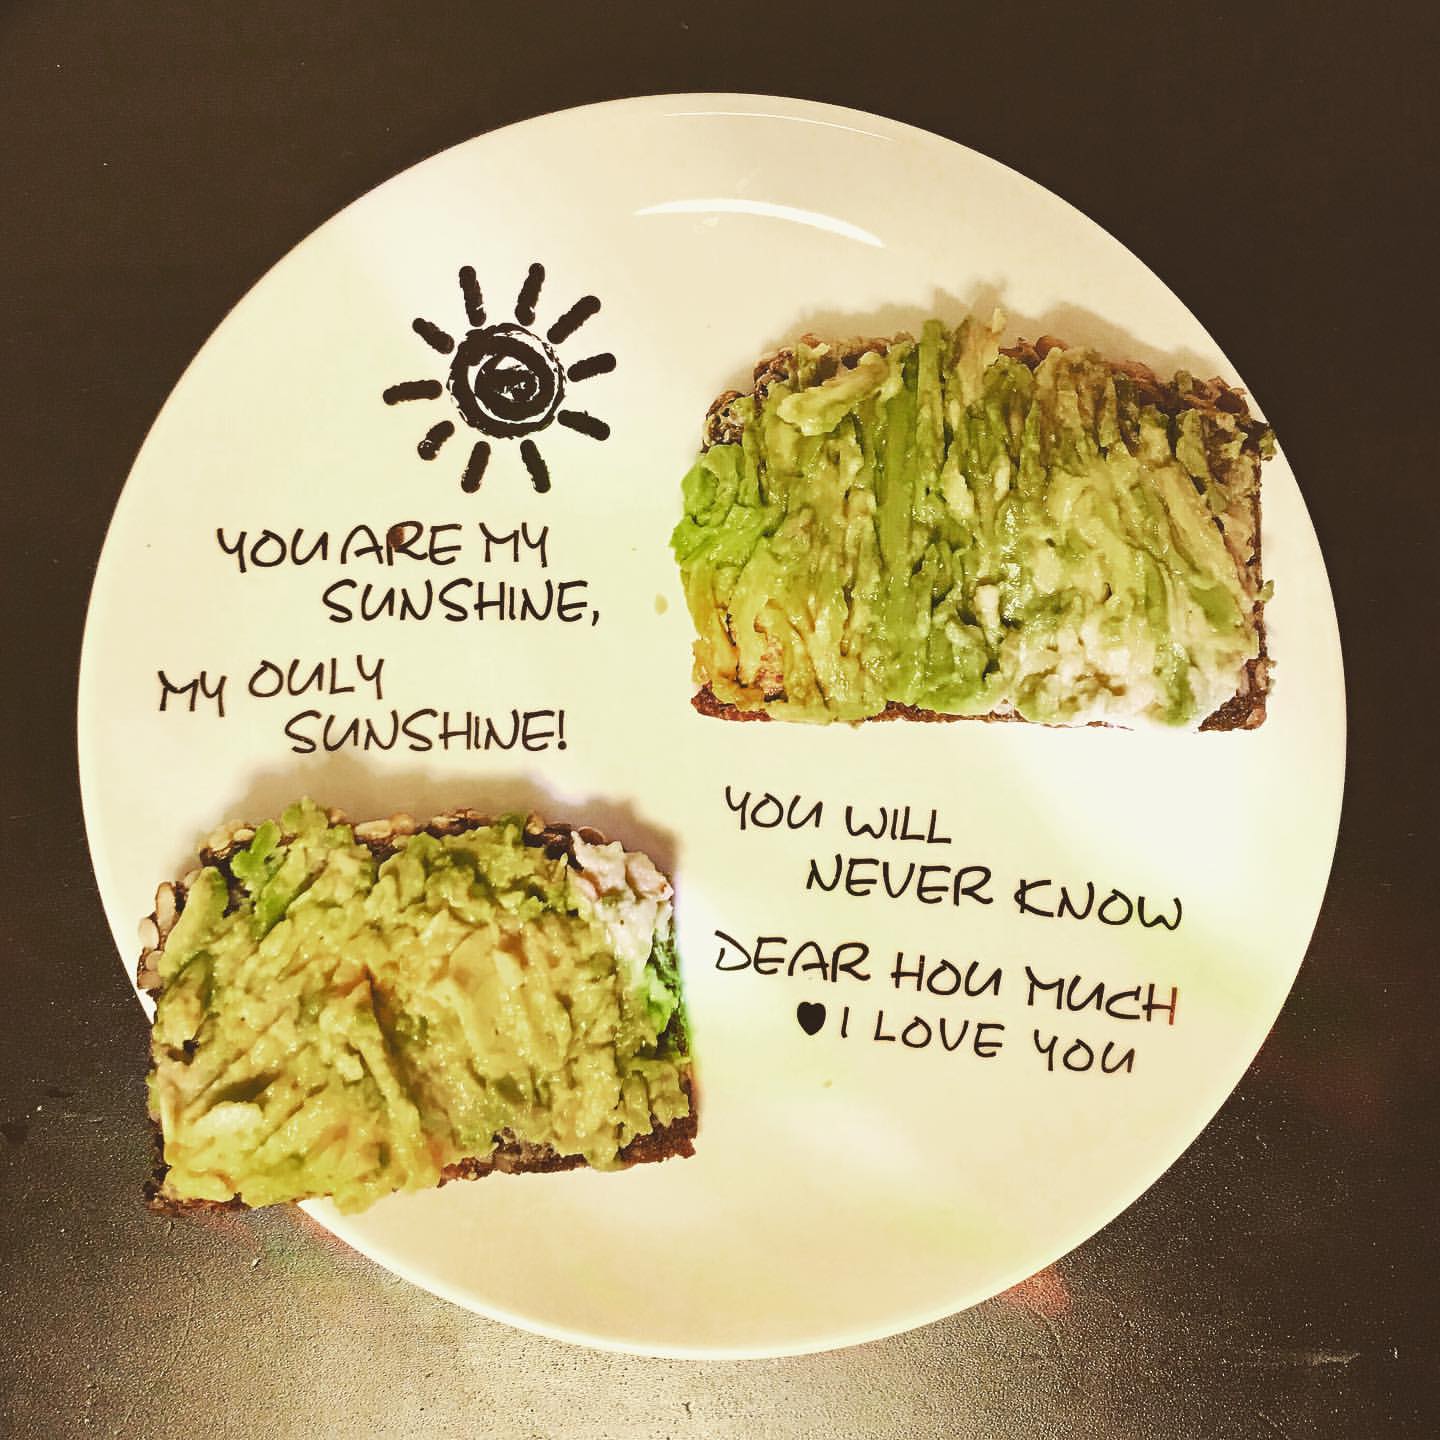 YOU ARE MY
SUNSHINE,
MY OULY
SUNSHINE!
YOU WILL
NEVER KNOW
DEAR HOU MUCH
♥ I LOVE YOU